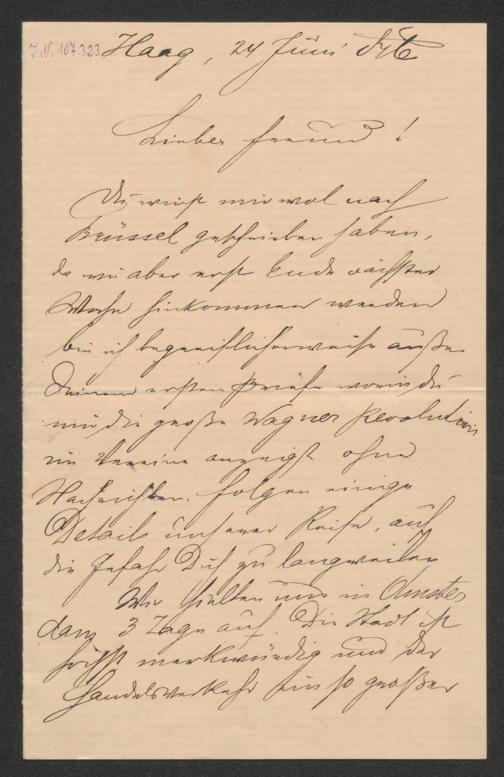 I.N. 107.323
Haag, 24 Juni
Lieber Freund!
Du wirst mir wol nach
Brüssel geschrieben haben,
da wir aber erst Ende nächster
Woche hinkommen werden
bin ich begreiflicherweise außer
Deinem ersten Briefe worin Du
mir die große Wagner Revolution
im Vereine anzeigst ohne
Nachrichten. Folgen einige
Details unserer Reise, auf
die Gefahr Dich zu langweilen
Wir hielten uns in Amster
dam 3 Tage auf. Die Stadt ist
höchst merkwürdig und der
Handelsverkehr ein so großer